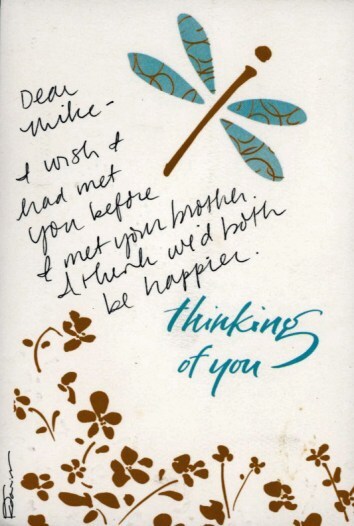 Dear
Mike-
I wish I
had met
you before
I met your brother.
I think we'd both
be happier.
thinking
of you